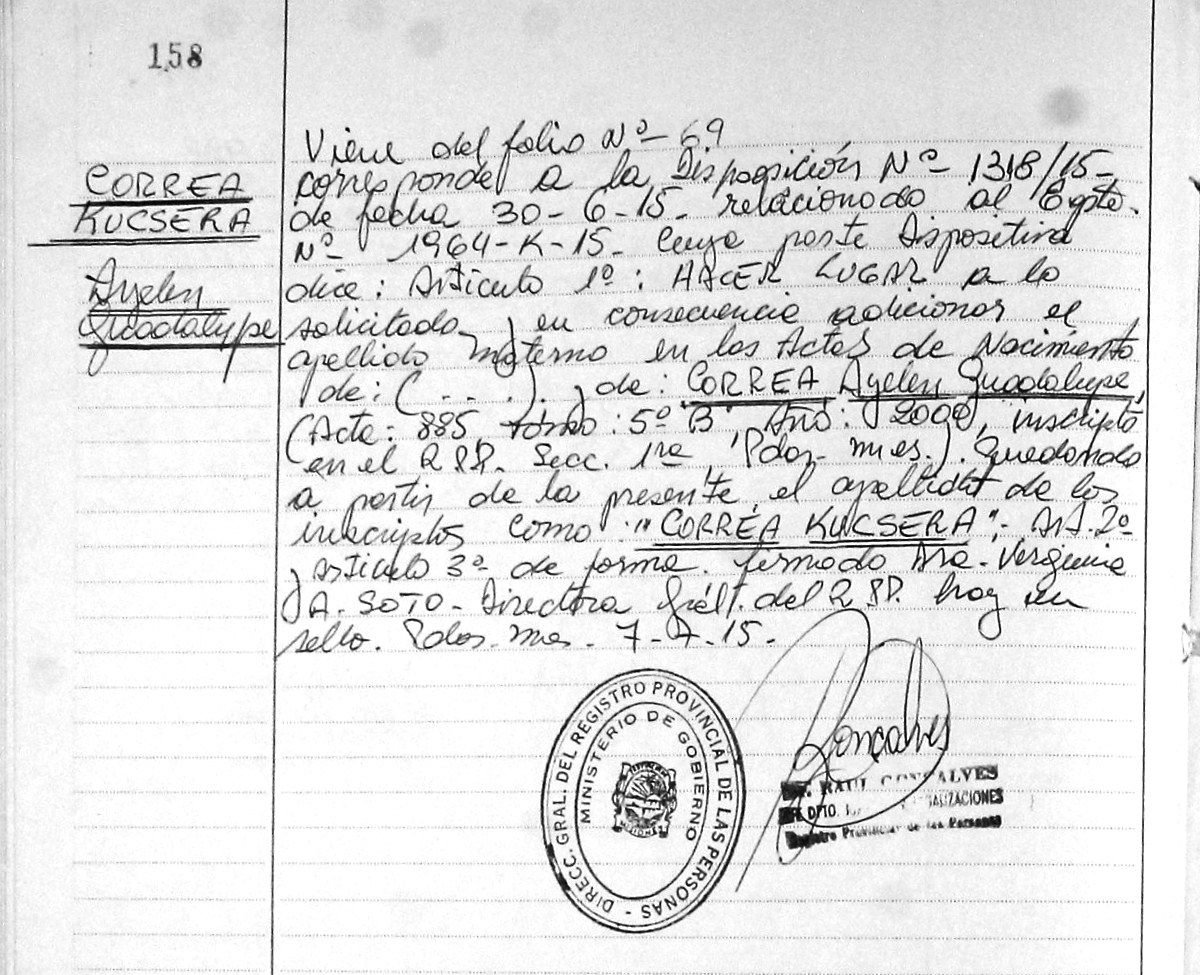 158
CORREA
KUCSERA
Ayelen
Guadalupe
Viene del folio Nº 69
corresponde a la Disposición Nº 1318/15
de fecha 30-6-15- relacionado al Expte.
Nº 1964-K-15- Cuya parte dispositiva
dice: Artículo 1º: HACER LUGAR a lo
solicitado y en consecuencia adicionar el
apellido materno en las Actas de Nacimiento
de: (....), de: CORREA Ayelen Guadalupe,
(Acta: 885, tomo: 5º B, Año: 2000, inscripta
en el RPP. Secc. 1ra, Pdas- mnes.). Quedando
a partir de la presente, el apellido de los
inscriptos como: "CORREA KUCSERA". Art. 2º
y artículo 3º de forma. firmado Dra. Virginia
A. SOTO - Directora Gral. del RPP. hay un
sello. Pdas. mnes. 7-7-15.
DIRECC. GRAL. DEL REGISTRO PROVINCIAL DE LAS PERSONAS -
MINISTERIO DE GOBIERNO
MISIONES
Goncalves
RAUL GONCALVES
DPTO.
Registro Provincial de las Personas